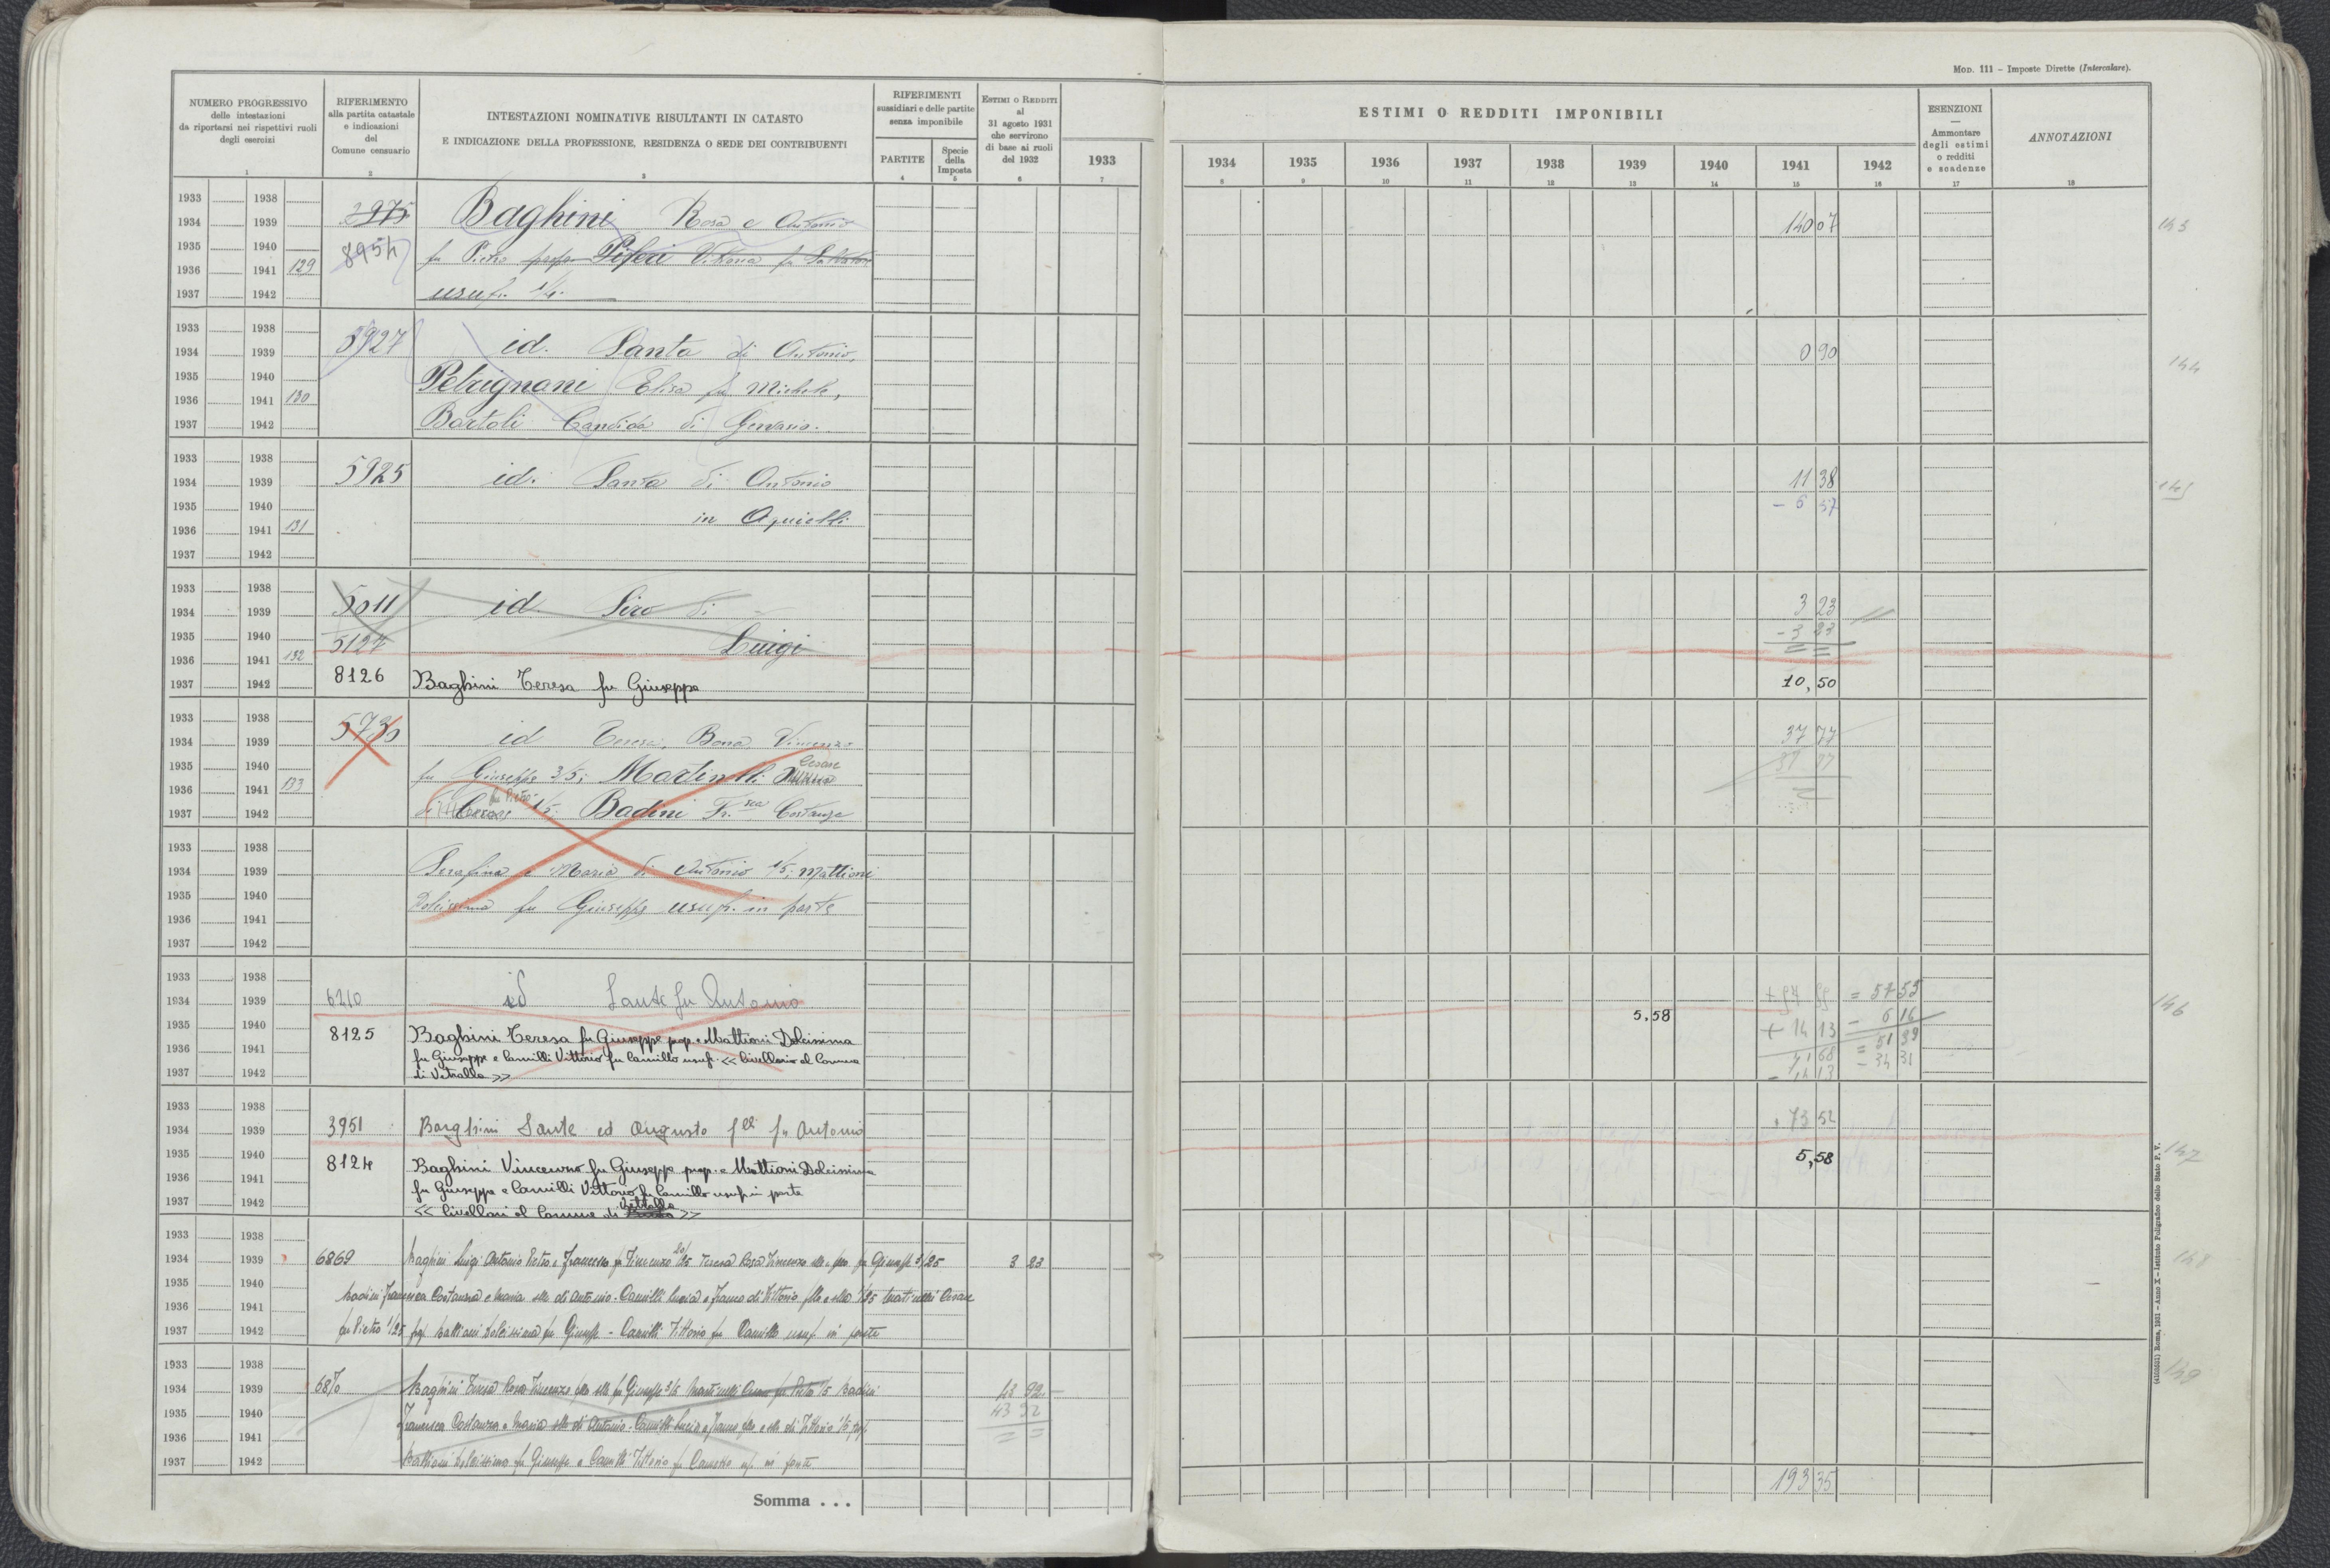 MOD. 111 – Imposte Dirette (Intercalare).
NUMERO PROGRESSIVO
delle intestazioni
da riportarsi nei rispettivi ruoli
degli esercizi
RIFERIMENTO
alla partita catastale
e indicazioni
del
Comune censuario
INTESTAZIONI NOMINATIVE RISULTANTI IN CATASTO
E INDICAZIONE DELLA PROFESSIONE, RESIDENZA O SEDE DEI CONTRIBUENTI
RIFERIMENTI
sussidiari e delle partite
senza imponibile
PARTITE
Specie
della
Imposta
ESTIMI O REDDITI
al
31 agosto 1931
che servirono
di base ai ruoli
del 1932
1933
ESTIMI O REDDITI IMPONIBILI
1934 1935 1936 1937 1938 1939 1940 1941 1942
ESENZIONI
—
Ammontare
degli estimi
o redditi
e scadenze
ANNOTAZIONI
1 2 3 4 5 6 7 8 9 10 11 12 13 14 15 16 17 18
1933 1938
1934 1939 2975 Baghini Rosa e Antonio 140 07 143
1935 1940 8954 fu Pietro Piferi Vittoria fu Salvatore
1936 1941 129
1937 1942 usuf. 1/4.
1933 1938
1934 1939 5927 id. Santa di Antonio, 0 90 144
1935 1940 Petrignani Elisa fu Michele,
1936 1941 130
1937 1942 Bartoli Candida di Gervasio.
1933 1938
1934 1939 5925 id. Santa di Antonio 11 38
1935 1940 in – 6 57
1936 1941 131
1937 1942
1933 1938
1934 1939 5011 id Siro di 3 23
1935 1940 5127 Luigi – 3 23
1936 1941 132
1937 1942 8126 Baghini Teresa fu Giuseppe 10,50
1933 1938
1934 1939 5730 id Teresa, Rosa Vincenzo 37 77
1935 1940 fu Giuseppe 3/5; Martinelli Cesare 37 77
1936 1941 133 fu Pietro
1937 1942 di 1/5. Badini Fr.sca Costanza
1933 1938
1934 1939 Serafina e Maria di Antonio 1/5; Mattioni
1935 1940 Dolcissima fu Giuseppe usuf. in parte
1936 1941
1937 1942
1933 1938
1934 1939 6210 id Sante fu Antonio 5,58 = 57 55 146
1935 1940 8125 Baghini Teresa fu Giuseppe prop. e Mattioni Dolcissima + 14 13 – 6 16
1936 1941 fu Giuseppe e Camilli Vittorio fu Camillo usuf. << livellario al Comune = 51 39
1937 1942 di Vetralla >> – 14 13 – 34 31
1933 1938
1934 1939 3951 Barghini Sante ed Augusto f.lli fu Antonio 73 52
1935 1940 8124 Baghini Vincenzo fu Giuseppe prop. e Mattioni Dolcissima 5,58 147
1936 1941 fu Giuseppe e Camilli Vittorio fu Camillo usuf. in parte
1937 1942 << livellari al Comune di Vetralla >>
1933 1938
1934 1939 6869 Baghini Luigi Antonio Pietro e Francesco fu Vincenzo 20/25 Teresa Rosa Vincenzo fu Giuseppe 3/25 3 23 148
1935 1940 Badini Francesca Costanza e Maria di Antonio - Camilli Lucia e Franco di Vittorio 1/25 Martinelli Cesare
1936 1941
1937 1942 fu Pietro 1/25 Mattioni Dolcissima fu Giuseppe - Camilli Vittorio fu Camillo usuf. in parte
1933 1938
1934 1939 6870 Baghini Teresa Rosa Vincenzo fu Giuseppe 3/5 Martinelli Cesare fu Pietro 1/5 Badini 43 92 149
1935 1940 Francesca Costanza e Maria di Antonio - Camilli Lucia e Franco di Vittorio 1/5 43 92
1936 1941
1937 1942 Mattioni Dolcissima fu Giuseppe e Camilli Vittorio fu Camillo in parte
193 35
Somma . . .
(4105551) Roma, 1931 – Anno X – Istituto Poligrafico dello Stato P. V.